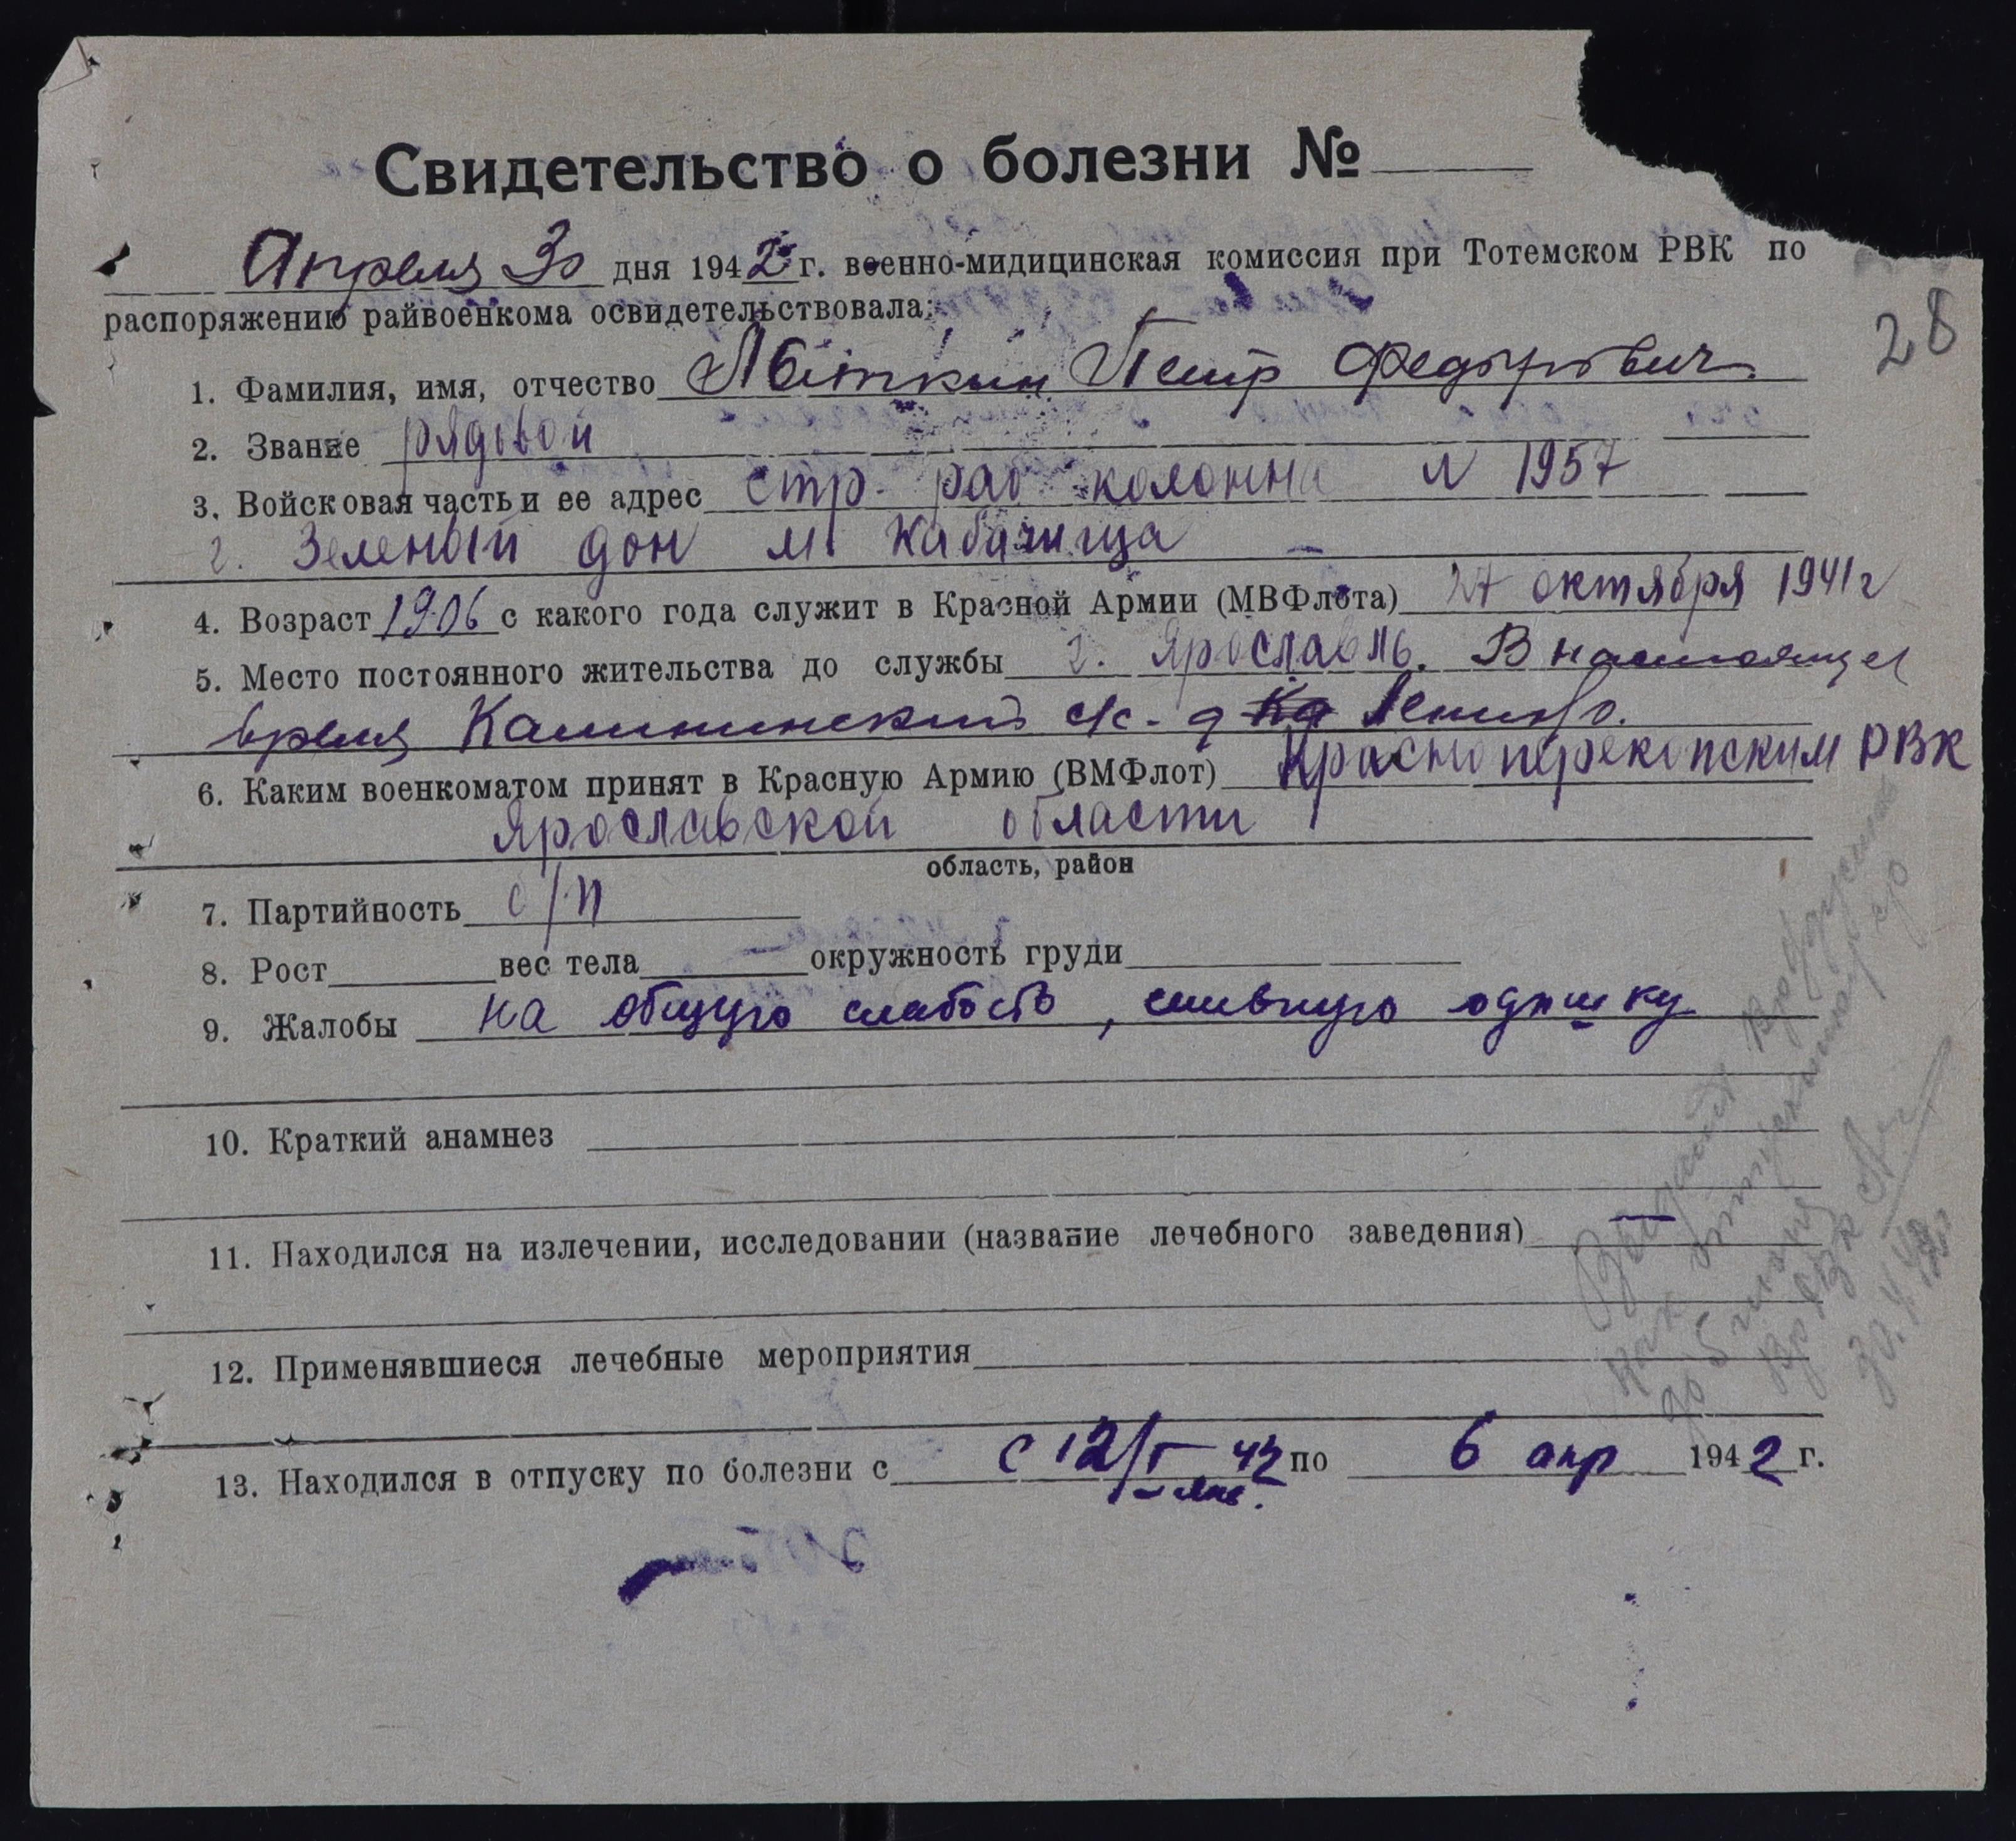 Свидетельство о болезни №
28
Апреля 30 дня 1942 г. военно-мидицинская комиссия при Тотемском РВК по
распоряжению райвоенкома освидетельствовала:
1. Фамилия, имя, отчество Петр Федорович
2. Звание рядовой
3. Войсковая часть и ее адрес стр. раб колонна N 1957
г. Зеленый дон м.
4. Возраст 1906 с какого года служит в Красной Армии (МВФлота) 27 октября 1941 г
5. Место постоянного жительства до службы г. Ярославль. В настоящее
время Калининский с/с - д Ленино.
6. Каким военкоматом принят в Красную Армию (ВМФлот) Красноперекопским РВК
Ярославской области
область, район
7. Партийность
8. Рост вес тела окружность груди
9. Жалобы на общую слабость, сильную одышку
10. Краткий анамнез
11. Находился на излечении, исследовании (название лечебного заведения) —
12. Применявшиеся лечебные мероприятия
13. Находился в отпуску по болезни с с 12/I 42 по 6 апр 1942 г.
янв.